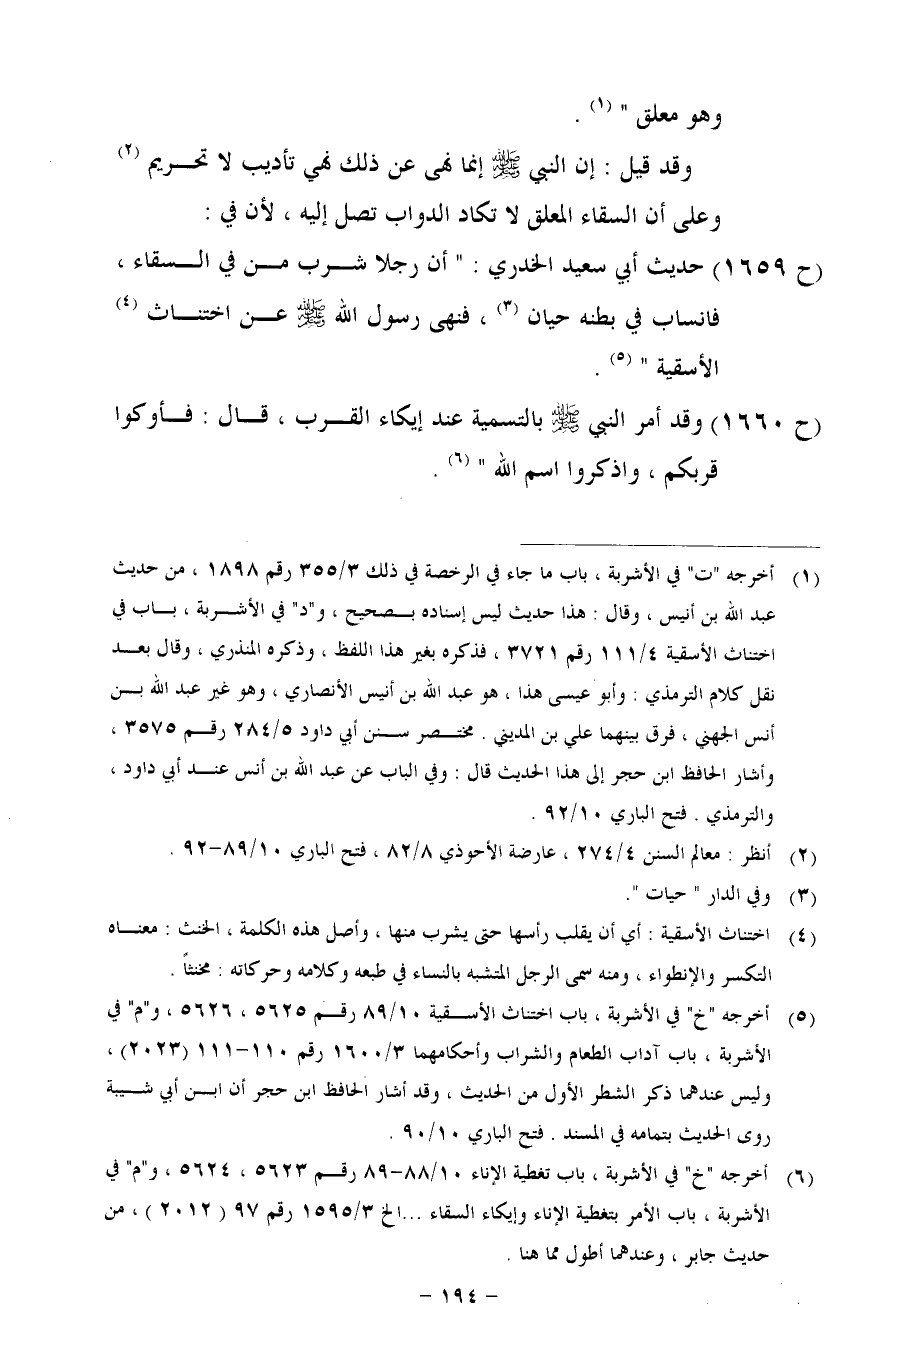 وهو معلق " (١) .
وقد قيل : إن النبي ﷺ إنما نهى عن ذلك نهي تأديب لا تحريم (٢)
وعلى أن السقاء المعلق لا تكاد الدواب تصل إليه ، لأن في :
(ح ١٦٥٩) حديث أبي سعيد الخدري : " أن رجلا شرب من في السقاء ،
فانساب في بطنه حيان (٣) ، فنهى رسول الله ﷺ عن اختناث (٤)
الأسقية " (٥) .
(ح ١٦٦٠) وقد أمر النبي ﷺ بالتسمية عند إيكاء القرب ، قال : فأوكوا
قربكم ، واذكروا اسم الله " (٦) .
(١) أخرجه "ت" في الأشربة ، باب ما جاء في الرخصة في ذلك ٣٥٥/٣ رقم ١٨٩٨ ، من حديث
عبد الله بن أنيس ، وقال : هذا حديث ليس إسناده بصحيح ، و"د" في الأشربة ، باب في
اختناث الأسقية ١١١/٤ رقم ٣٧٢١ ، فذكره بغير هذا اللفظ ، وذكره المنذري ، وقال بعد
نقل كلام الترمذي : وأبو عيسى هذا ، هو عبد الله بن أنيس الأنصاري ، وهو غير عبد الله بن
أنس الجهني ، فرق بينهما علي بن المديني . مختصر سنن أبي داود ٢٨٤/٥ رقم ٣٥٧٥ ،
وأشار الحافظ ابن حجر إلى هذا الحديث قال : وفي الباب عن عبد الله بن أنس عند أبي داود ،
والترمذي . فتح الباري ٩٢/١٠ .
(٢) أنظر : معالم السنن ٢٧٤/٤ ، عارضة الأحوذي ٨٢/٨ ، فتح الباري ٨٩/١٠-٩٢ .
(٣) وفي الدار " حيات ".
(٤) اختناث الأسقية : أي أن يقلب رأسها حتى يشرب منها ، وأصل هذه الكلمة ، الخنث : معناه
التكسر والإنطواء ، ومنه سمى الرجل المتشبه بالنساء في طبعه وكلامه وحركاته : مخنثاً .
(٥) أخرجه "خ" في الأشربة ، باب اختناث الأسقية ٨٩/١٠ رقم ٥٦٢٥ ، ٥٦٢٦ ، و"م" في
الأشربة ، باب آداب الطعام والشراب وأحكامهما ١٦٠٠/٣ رقم ١١٠-١١١ (٢٠٢٣) ،
وليس عندهما ذكر الشطر الأول من الحديث ، وقد أشار الحافظ ابن حجر أن ابن أبي شيبة
روى الحديث بتمامه في المسند . فتح الباري ٩٠/١٠ .
(٦) أخرجه "خ" في الأشربة ، باب تغطية الإناء ٨٨/١٠-٨٩ رقم ٥٦٢٣ ، ٥٦٢٤ ، و"م" في
الأشربة ، باب الأمر بتغطية الإناء وإيكاء السقاء ...الخ ١٥٩٥/٣ رقم ٩٧ ( ٢٠١٢ ) ، من
حديث جابر ، وعندهما أطول مما هنا .
- ١٩٤ -